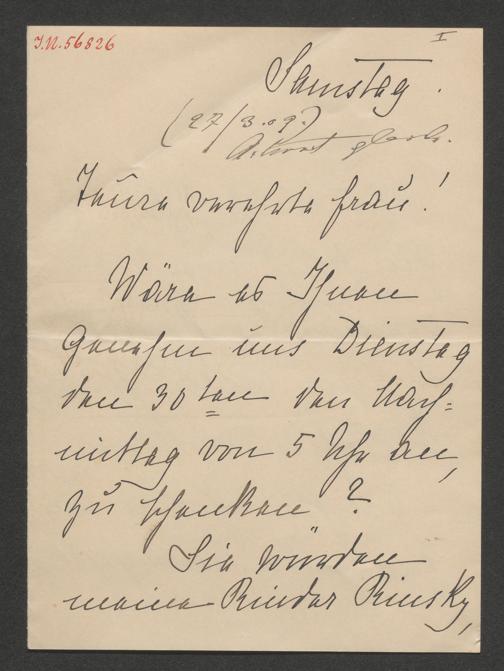 J.N. 56826
I
Samstag.
(27/3.09.)
Teure verehrte Frau!
Wäre es Ihnen
genehm uns Dienstag
den 30ten den Nach=
mittag von 5 Uhr an,
zu schenken?
Sie würden
meine Kinder Rinsky,